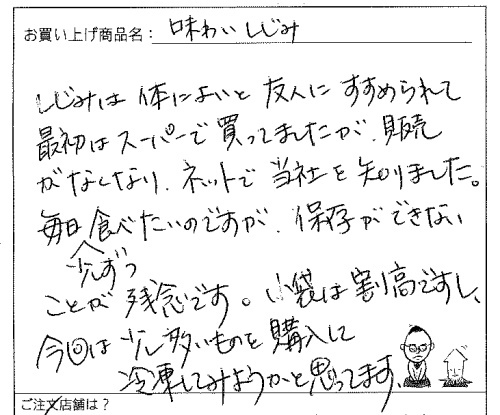 お買い上げ商品名: 味わいしじみ
しじみは体によいと友人にすすめられて
最初はスーパーで買ってましたが、販売
がなくなり、ネットで当社を知りました。
毎日少しずつ食べたいのですが、保存ができない
ことが残念です。小袋は割高ですし、
今回は少し多いものを購入して
冷凍してみようかと思ってます。
ご注文店舗は?